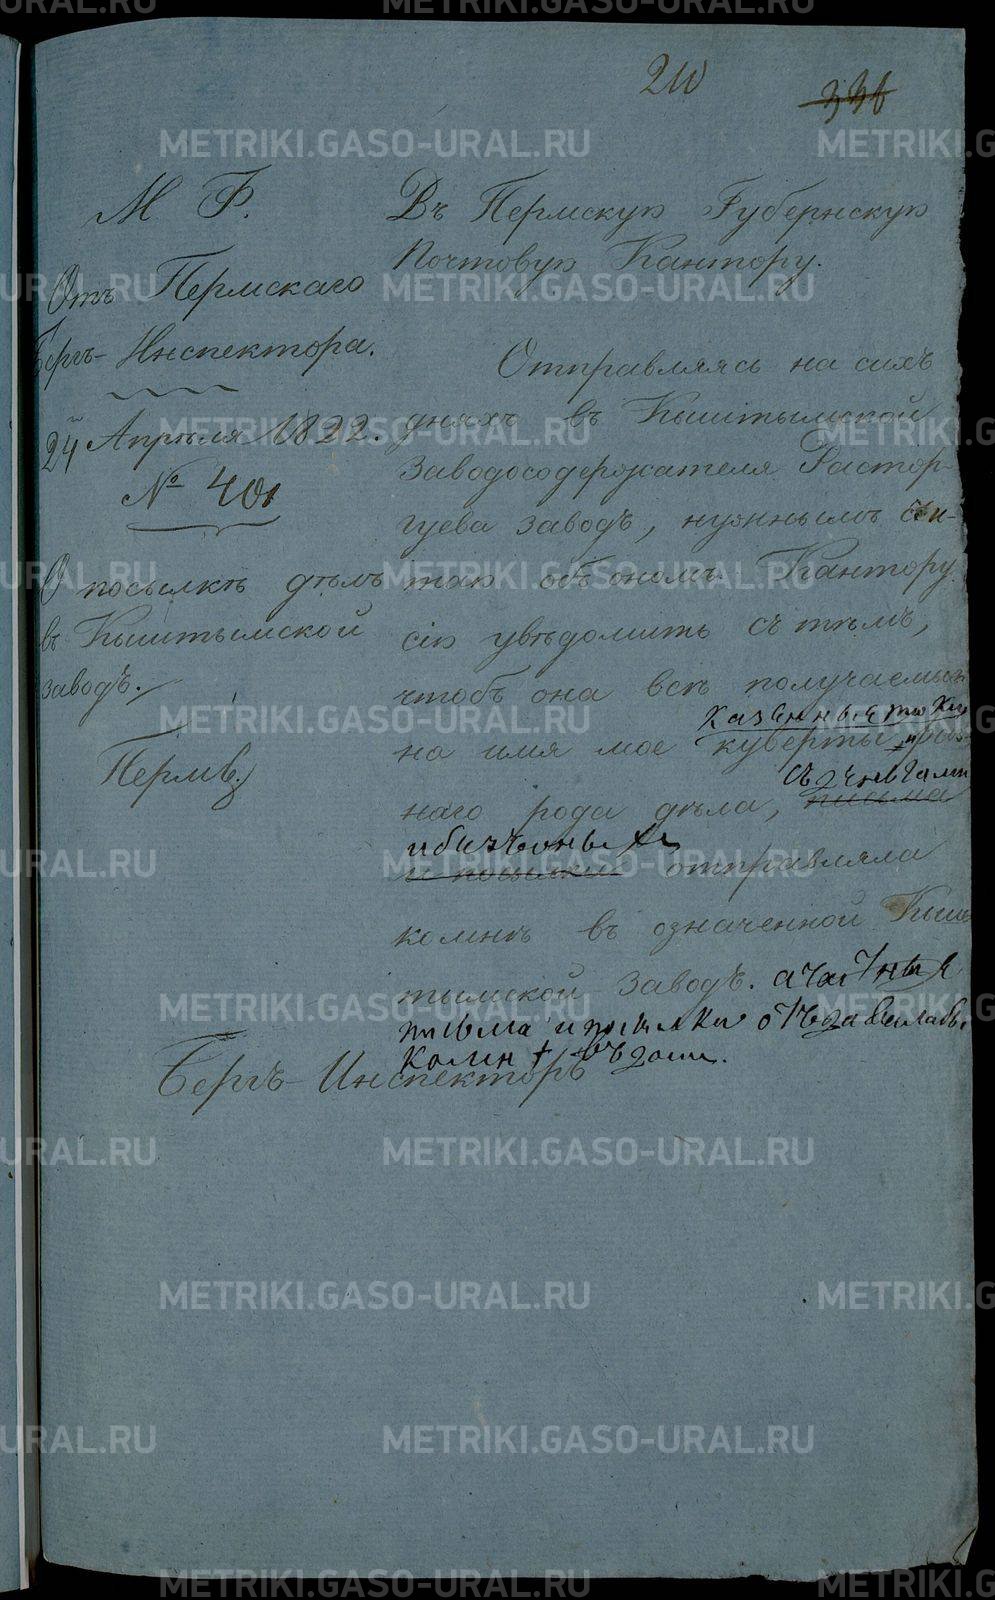 210
336
М. Ф.
Отъ Пермскаго
Бергъ-Инспектора.
24 Апреля 1822.
№ 401
О посылкѣ дѣлъ
въ Кыштымской
заводъ.
Пермь
Въ Пермскую Губернскую
Почтовую Кантору.
Отправляясь на сихъ
дняхъ въ Кыштымской
Заводосодержателя Растор-
гуева заводъ, нужнымъ счи-
таю объ ономъ Кантору
сію увѣдомить съ тѣмъ,
чтобъ она всѣ получаемые
казенные токмо
на имя мое куверты и раз-
съ деньгами
наго рода дѣла, письма
и безъ оныхъ
и посылки отправляла
комнѣ въ означенной Кыш-
тымской заводъ. а частные
письма и посылки отдавала бы
Бергъ-Инспекторъ
METRIKI.GASO-URAL.RU